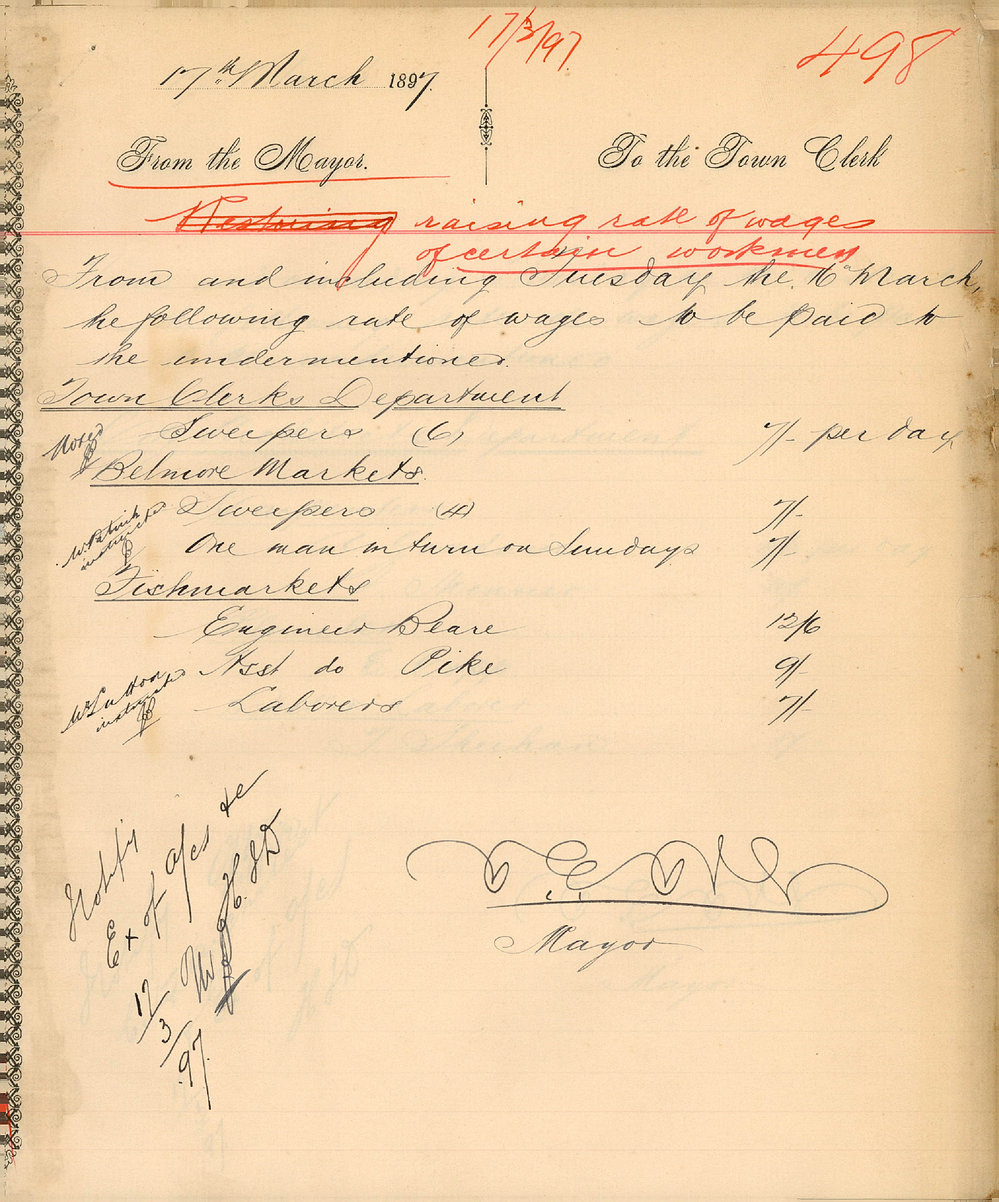 17/3/97.
498
17th March 1897.
From the Mayor.
To the Town Clerk
Restoring raising rate of wages
of certain workmen
From and including Tuesday the 16th March,
the following rate of wages to be paid to
the undermentioned.
Town Clerks Department
Noted
Sweepers (6) 7/- per day
Belmore Markets.
Sweepers (4) 7/-
W. Patrick
instructed
One man in turn on Sundays 7/-
Fishmarkets
Engineer Beare 12/6
Asst do Pike 9/-
instructed
Laborers 7/-
Notify
Ex of a/cs &c
H.J.D
17/3/97.
Mayor